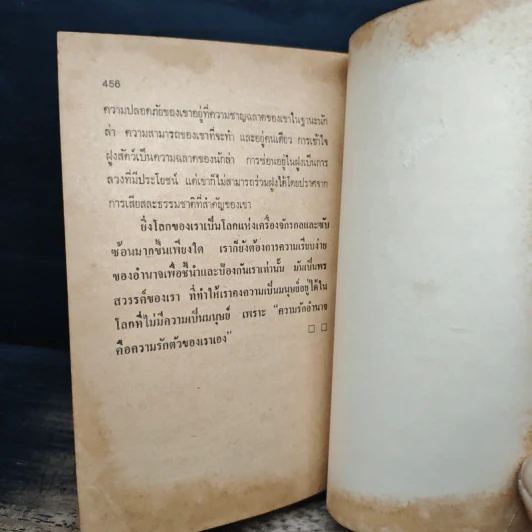 456
ความปลอดภัยของเขาอยู่ที่ความชาญฉลาดของเขาในฐานะนัก
ล่า ความสามารถของเขาที่จะทำ และอยู่คนเดียว การเข้าใจ
ฝูงสัตว์เป็นความฉลาดของนักล่า การซ่อนอยู่ในฝูงเป็นการ
ลวงที่มีประโยชน์ แต่เขาก็ไม่สามารถร่วมฝูงได้โดยปราศจาก
การเสียสละธรรมชาติที่สำคัญของเขา
ยิ่งโลกของเราเป็นโลกแห่งเครื่องจักรกลและซับ
ซ้อนมากขึ้นเพียงใด เราก็ยังต้องการความเรียบง่าย
ของอำนาจเพื่อชี้นำและป้องกันเราเท่านั้น มันเป็นพร
สวรรค์ของเรา ที่ทำให้เราคงความเป็นมนุษย์อยู่ได้ใน
โลกที่ไม่มีความเป็นมนุษย์ เพราะ "ความรักอำนาจ
คือความรักตัวของเราเอง" □ □